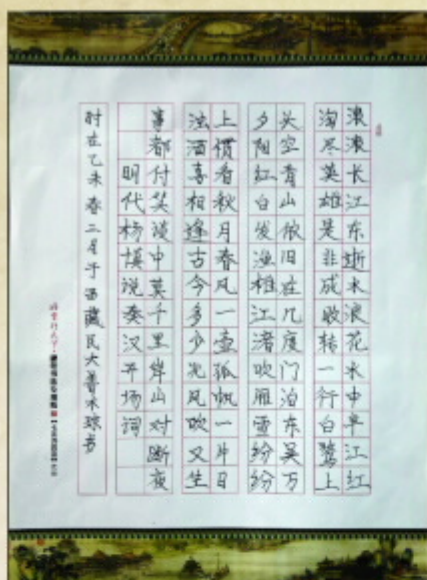 滚滚长江东逝水浪花水中阜江红
淘尽英雄是非成败转一行白鹭上
头空青山依旧在几度门泊东吴万
夕阳红白发渔樵江渚吹雁雪纷纷
上惯看秋月春风一壶孤帆一片日
浊酒喜相逢古今多少北风吹又生
事都付笑谈中莫千里岸山对断夜
明代杨慎说秦汉开场词
时在乙未春二月于西藏民大普木琼书